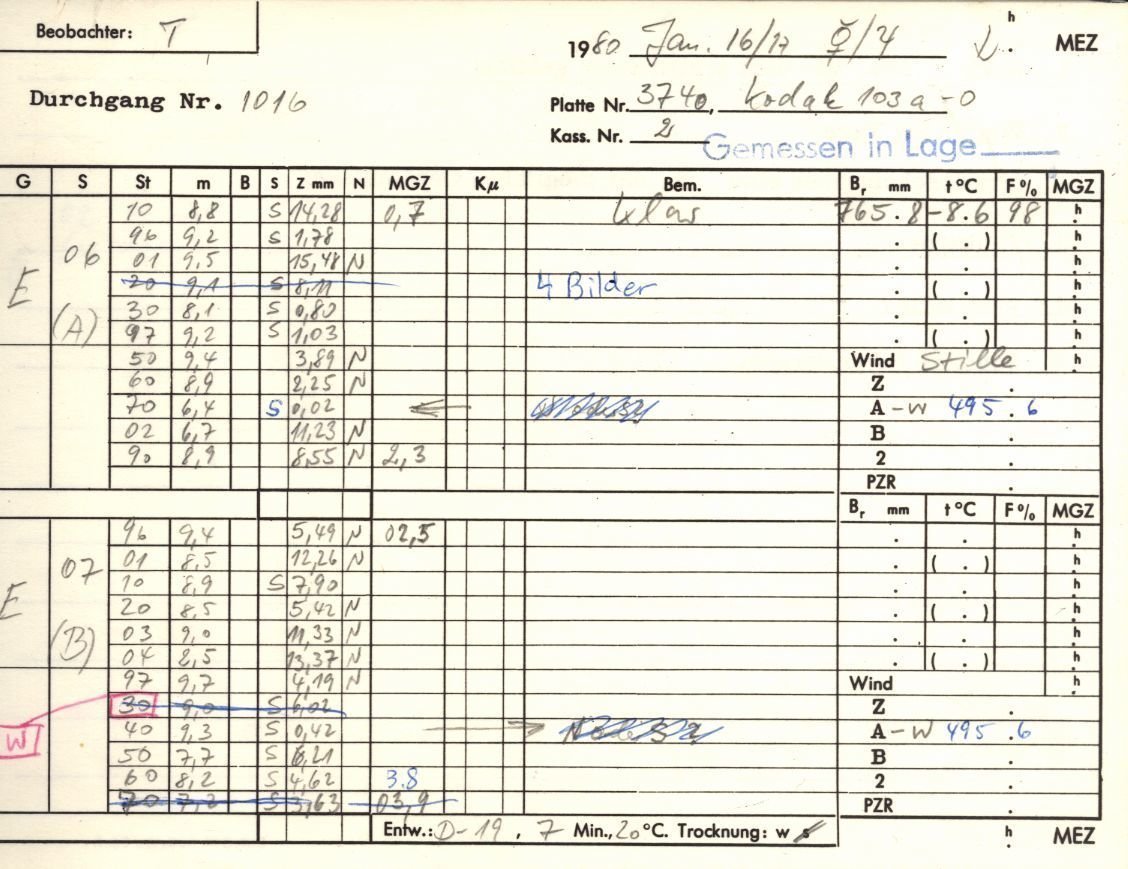 Beobachter: T
1980 Jan. 16/17 ♀/4 h . MEZ
Durchgang Nr. 1016
Platte Nr. 3740, Kodak 103a-O
Kass. Nr. 2
Gemessen in Lage
G S St m B S Z mm N MGZ Kμ Bem. Br mm t°C F% MGZ
10 8,8 S 14,28 0,7 klar 765.8 -8.6 98 h
96 9,2 S 1,78 . ( . ) h
06 01 9,5 15,48 N . . h
E 20 9,1 S 8,11 4 Bilder . ( . ) h
30 8,1 S 0,80 . . h
(A) 97 9,2 S 1,03 . ( . ) h
50 9,4 3,89 N Wind Stille h
60 8,9 2,25 N Z .
70 6,4 S 0,02 A -W 495.6
02 6,7 11,23 N B .
90 8,9 8,55 N 2,3 2 .
PZR .
Br mm t°C F% MGZ
96 9,4 5,49 N 02,5 . . h
07 01 8,5 12,26 N . ( . ) h
E 10 8,9 S 7,90 . . h
20 8,5 5,42 N . ( . ) h
(B) 03 9,0 11,33 N . . h
04 8,5 13,37 N . ( . ) h
97 9,7 4,19 N Wind h
30 9,0 S 6,02 Z .
W 40 9,3 S 0,42 A -W 495.6
50 7,7 S 6,21 B .
60 8,2 S 4,62 3.8 2 .
70 7,2 S 3,63 03,9 PZR .
Entw.: D-19, 7 Min., 20°C. Trocknung: w s h . MEZ